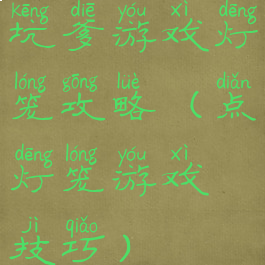 kēng diē yóu xì dēng
坑爹游戏灯
lóng gōng lüè diǎn
笼攻略（点
dēng lóng yóu xì
灯笼游戏
jì qiǎo
技巧）